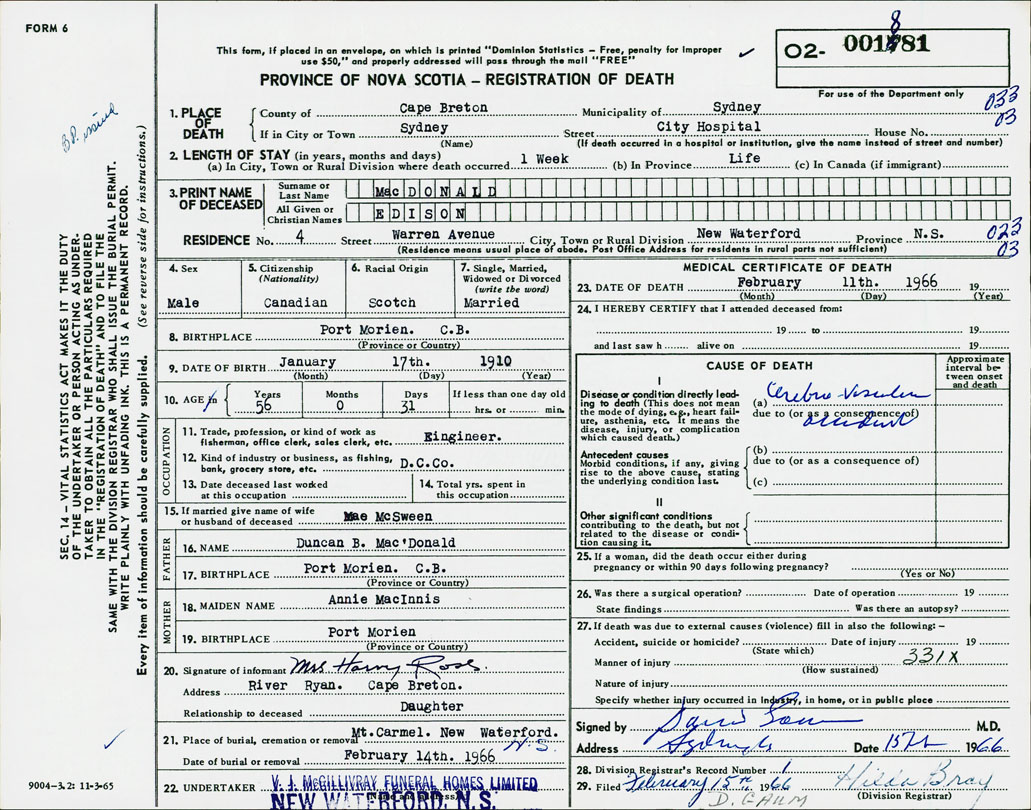 FORM 6
This form, if placed in an envelope, on which is printed "Dominion Statistics – Free, penalty for improper
use $50," and properly addressed will pass through the mail "FREE"
PROVINCE OF NOVA SCOTIA – REGISTRATION OF DEATH
O2- 001881
For use of the Department only
B.P. issued
SEC. 14 – VITAL STATISTICS ACT MAKES IT THE DUTY
OF THE UNDERTAKER OR PERSON ACTING AS UNDER-
TAKER TO OBTAIN ALL THE PARTICULARS REQUIRED
IN THE "REGISTRATION OF DEATH" AND TO FILE THE
SAME WITH THE DIVISION REGISTRAR WHO SHALL ISSUE THE BURIAL PERMIT.
WRITE PLAINLY WITH UNFADING INK. THIS IS A PERMANENT RECORD.
Every item of information should be carefully supplied. (See reverse side for instructions.)
1. PLACE OF DEATH
County of Cape Breton Municipality of Sydney 033
If in City or Town Sydney Street City Hospital House No. 03
(Name) (If death occurred in a hospital or institution, give the name instead of street and number)
2. LENGTH OF STAY (in years, months and days)
(a) In City, Town or Rural Division where death occurred 1 Week (b) In Province Life (c) In Canada (if immigrant)
3. PRINT NAME OF DECEASED
Surname or Last Name MacDONALD
All Given or Christian Names EDISON
RESIDENCE No. 4 Street Warren Avenue City, Town or Rural Division New Waterford Province N.S. 023
(Residence means usual place of abode. Post Office Address for residents in rural parts not sufficient) 03
4. Sex
Male
5. Citizenship (Nationality)
Canadian
6. Racial Origin
Scotch
7. Single, Married, Widowed or Divorced (write the word)
Married
8. BIRTHPLACE Port Morien. C.B.
(Province or Country)
9. DATE OF BIRTH January 17th. 1910
(Month) (Day) (Year)
10. AGE in Years Months Days If less than one day old
56 0 31 hrs. or min.
OCCUPATION
11. Trade, profession, or kind of work as
fisherman, office clerk, sales clerk, etc. Engineer.
12. Kind of industry or business, as fishing,
bank, grocery store, etc. D.C.Co.
13. Date deceased last worked
at this occupation
14. Total yrs. spent in
this occupation
15. If married give name of wife
or husband of deceased Mae McSween
FATHER
16. NAME Duncan B. Mac'Donald
17. BIRTHPLACE Port Morien. C.B.
(Province or Country)
MOTHER
18. MAIDEN NAME Annie MacInnis
19. BIRTHPLACE Port Morien
(Province or Country)
20. Signature of informant Mrs Harvy Ross
Address River Ryan. Cape Breton.
Relationship to deceased Daughter
21. Place of burial, cremation or removal Mt.Carmel. New Waterford.
N.S.
Date of burial or removal February 14th. 1966
22. UNDERTAKER V. J. McGILLIVRAY FUNERAL HOMES LIMITED
(Name and address)
NEW WATERFORD, N.S.
9004-3.2: 11-3-65
MEDICAL CERTIFICATE OF DEATH
23. DATE OF DEATH February 11th. 1966 19
(Month) (Day) (Year)
24. I HEREBY CERTIFY that I attended deceased from:
19 to 19
and last saw h alive on 19
CAUSE OF DEATH
Approximate interval between onset and death
I
Disease or condition directly lead-
ing to death (This does not mean
the mode of dying, e.g., heart fail-
ure, asthenia, etc. It means the
disease, injury, or complication
which caused death.)
(a) Cerebro-Vascular
due to (or as a consequence of)
accident
Antecedent causes
Morbid conditions, if any, giving
rise to the above cause, stating
the underlying condition last.
(b)
due to (or as a consequence of)
(c)
II
Other significant conditions
contributing to the death, but not
related to the disease or condi-
tion causing it.
25. If a woman, did the death occur either during
pregnancy or within 90 days following pregnancy?
(Yes or No)
26. Was there a surgical operation? Date of operation 19
State findings Was there an autopsy?
27. If death was due to external causes (violence) fill in also the following: –
Accident, suicide or homicide? Date of injury 19
(State which)
Manner of injury 331X
(How sustained)
Nature of injury
Specify whether injury occurred in Industry, in home, or in public place
Signed by M.D.
Address Sydney Date 15 Feb 1966
28. Division Registrar's Record Number
29. Filed February 15th 1966 Hilda Bray
(Division Registrar)